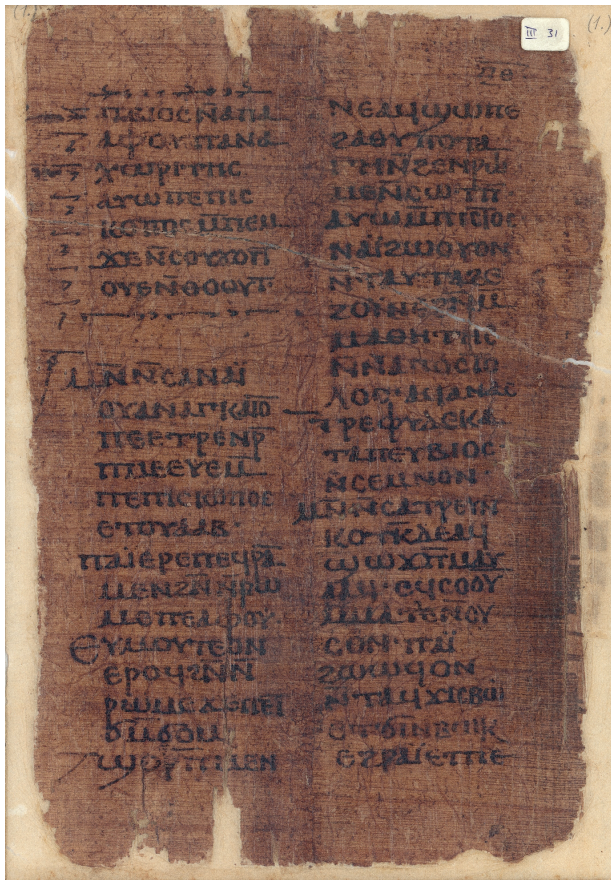 ⲠⲐ
ⲡⲃⲓⲟⲥ ⲛ̄ⲁⲡⲁ
ⲁⲫⲟⲩ ⲡⲁⲛⲁ
ⲭⲱⲣⲓⲧⲏⲥ
ⲁⲩⲱ ⲡⲉⲡⲓⲥ
ⲕⲟⲡⲟⲥ ⲙ̄ⲡⲉⲙ
ϫⲉ ⲛ̄ⲥⲟⲩϫⲟⲩⲧ
ⲟⲩⲉ ⲛ̄ⲑⲟⲟⲩⲧ·
ⲙⲛ̄ⲛ̄ⲥⲁ ⲛⲁⲓ̈
ⲟⲩⲁⲛⲁⲅⲕⲁⲓⲟ̄
ⲡⲉ ⲉⲧⲣⲉⲛⲣ̄
ⲡⲙⲉⲉⲩⲉ ⲙ̄
ⲡⲉⲡⲓⲥⲕⲟⲡⲟⲥ
ⲉⲧⲟⲩⲁⲁⲃ·
ⲡⲁⲓ̈ ⲉⲣⲉ ⲡⲉϥⲣⲁ̄
ⲙⲉⲛ ϩⲛ̄ ⲛ̄ⲣⲱ
ⲙⲉ ⲡⲉ ⲁⲫⲟⲩ·
ⲉⲩⲙⲟⲩⲧⲉ ⲟⲛ
ⲉⲣⲟϥ ϩⲛ̄ ⲛ̄
ⲣⲱⲙⲉ ϫⲉ ⲡⲉⲓ̈
ϭⲙ̄ϭⲟⲙ
ϣⲟⲣⲡ̄ ⲙⲉⲛ
ⲛⲉⲁϥϣⲱⲡⲉ
ϩⲁ ⲑⲩⲡⲟⲧⲁ
ⲅⲏ ⲛ̄ϩⲉⲛⲣⲱ
ⲙⲉ ⲛ̄ⲥⲱⲧⲡ̄·
ⲁⲩⲱ ⲙ̄ⲡⲓⲥⲧⲟⲥ
ⲛⲁⲓ̈ ϩⲱⲟⲩ ⲟⲛ
ⲛ̄ⲧⲁⲩⲧⲁϩⲉ
ϩⲟⲓ̈ⲛⲉ ϩⲛ̄ ⲙ̄
ⲙⲁⲑⲏⲧⲏⲥ
ⲛ̄ⲛⲁⲡⲟⲥⲧⲟ
ⲗⲟⲥ· ⲁⲩⲁⲛⲁⲥ
ⲧⲣⲉⲫⲩ ⲇⲉ ⲕⲁ
ⲧⲁ ⲡⲉⲩⲃⲓⲟⲥ
ⲛ̄ⲥⲉⲙⲛⲟⲛ·
ⲙⲛ̄ⲛ̄ⲥⲁ ⲧⲣⲉⲩⲛ̄
ⲕⲟⲧⲕ̄ ⲇⲉ ⲁϥ
ϣⲱϫⲡ̄ ⲙⲁⲩ
ⲁⲁϥ· ⲉϥⲥⲟⲟⲩ
ⲙⲙⲁⲩ ⲉⲛⲟⲩ
ⲥⲟⲛ· ⲡⲁⲓ̈
ϩⲱⲱϥ ⲟⲛ
ⲛ̄ⲧⲁϥϫⲓ
ⲉϩⲣⲁⲓ̈ ⲉⲧⲡⲉ
III 31
(1.)